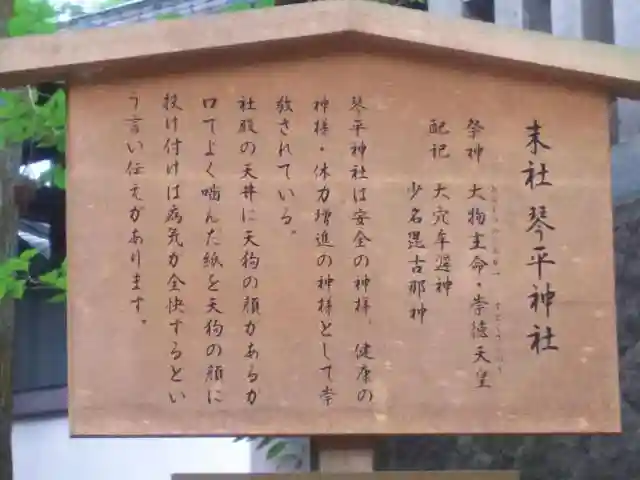 末社 琴平神社
祭神 大物主命・崇徳天皇
配記 大穴牟遅神
少名毘古那神
琴平神社は安全の神様、健康の
神様・体力増進の神様として崇
敬されている。
社殿の天井に天狗の顔があるが
口でよく噛んだ紙を天狗の顔に
投け付けは病気が全快するとい
う言い伝えがあります。